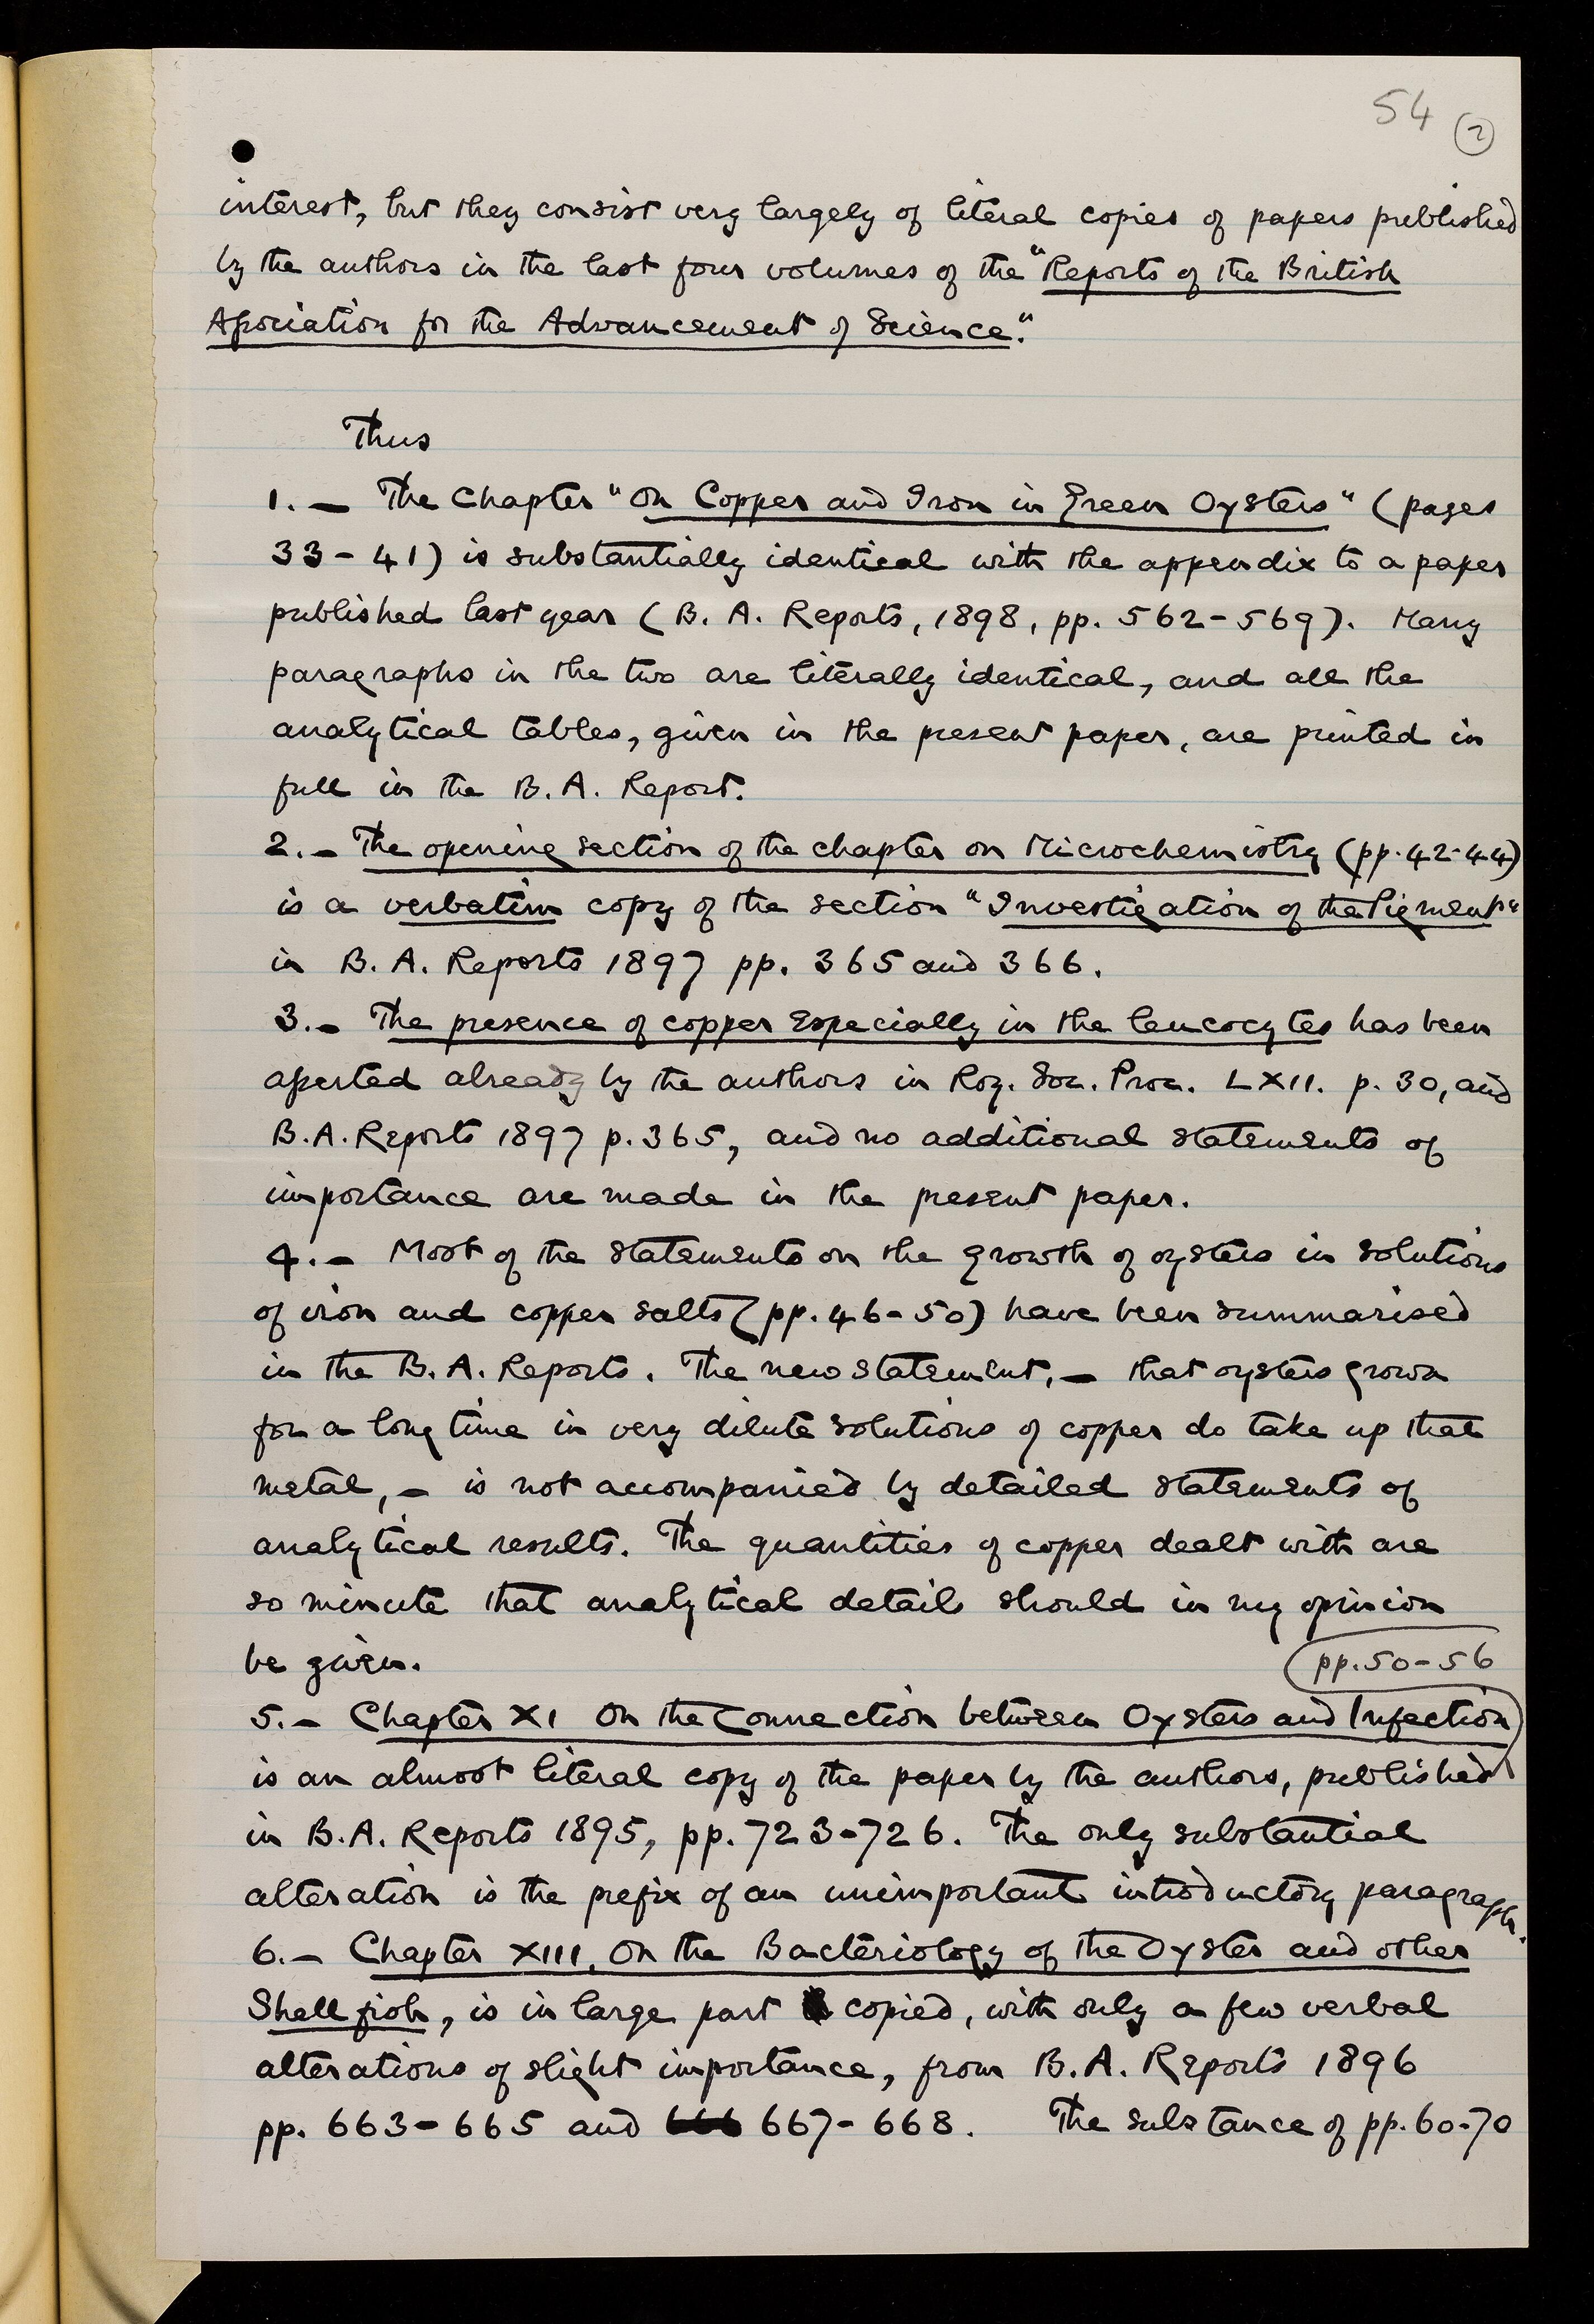 54 (2)
interest, but they consist very largely of literal copies of papers published
by the authors in the last four volumes of the "Reports of the British
Association for the Advancement of Science".
Thus
1. — The Chapter "On Copper and Iron in Green Oysters" (pages
33-41) is substantially identical with the appendix to a paper
published last year (B. A. Reports, 1898, pp. 562-569). Many
paragraphs in the two are literally identical, and all the
analytical tables, given in the present paper, are printed in
full in the B. A. Report.
2. — The opening section of the chapter on Microchemistry (pp. 42-44)
is a verbatim copy of the section "Investigation of the Pigment"
in B. A. Reports 1897 pp. 365 and 366.
3. — The presence of copper especially in the leucocytes has been
asserted already by the authors in Roy. Soc. Proc. LXII. p. 30, and
B.A. Reports 1897 p. 365, and no additional statements of
importance are made in the present paper.
4. — Most of the statements on the growth of oysters in solutions
of iron and copper salts (pp. 46-50) have been summarised
in the B. A. Reports. The new statement, — that oysters grown
for a long time in very dilute solutions of copper do take up that
metal, — is not accompanied by detailed statements of
analytical results. The quantities of copper dealt with are
so minute that analytical details should in my opinion
be given.
pp. 50-56
5. — Chapter XI On the Connection between Oysters and Infection
is an almost literal copy of the paper by the authors, published
in B.A. Reports 1895, pp. 723-726. The only substantial
alteration is the prefix of an unimportant introductory paragraph.
6. — Chapter XIII, On the Bacteriology of the Oyster and other
Shell fish, is in large part copied, with only a few verbal
alterations of slight importance, from B. A. Reports 1896
pp. 663-665 and 666 667-668. The substance of pp. 60-70